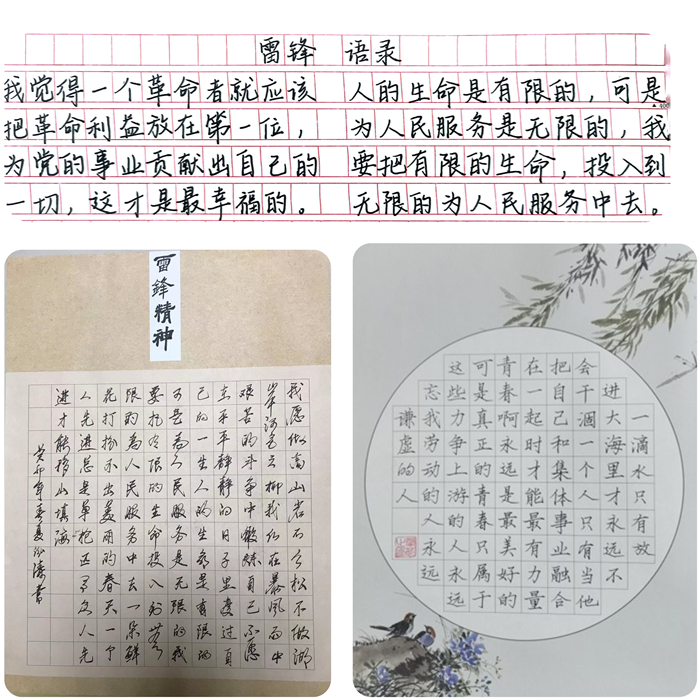 雷锋 语录
我觉得一个革命者就应该
把革命利益放在第一位，
为党的事业贡献出自己的
一切，这才是最幸福的。
人的生命是有限的，可是
为人民服务是无限的，我
要把有限的生命，投入到
无限的为人民服务中去。
▲400
雷锋精神
我愿做高山岩石之松不做湖
岸河旁之柳我们在暴风雨中
艰苦的斗争中锻炼自己不愿
在平平静静的日子里度过自
己的一生人的生命是有限的
可是为人民服务是无限的我
要把有限的生命投入到
限的为人民服务中去一朵鲜
花打扮不出美丽的春天一个
人先进总是单枪匹马众人先
进才能移山填海
癸卯年春夏 书
一滴水只有放
进大海里才永远不
会干涸一个人只有当他
把自己和集体事业融合
在一起时才能最有力量
青春啊永远是最美好的
可是真正的青春只属于
这些力争上游的人永远
忘我劳动的人永远
谦虚的人